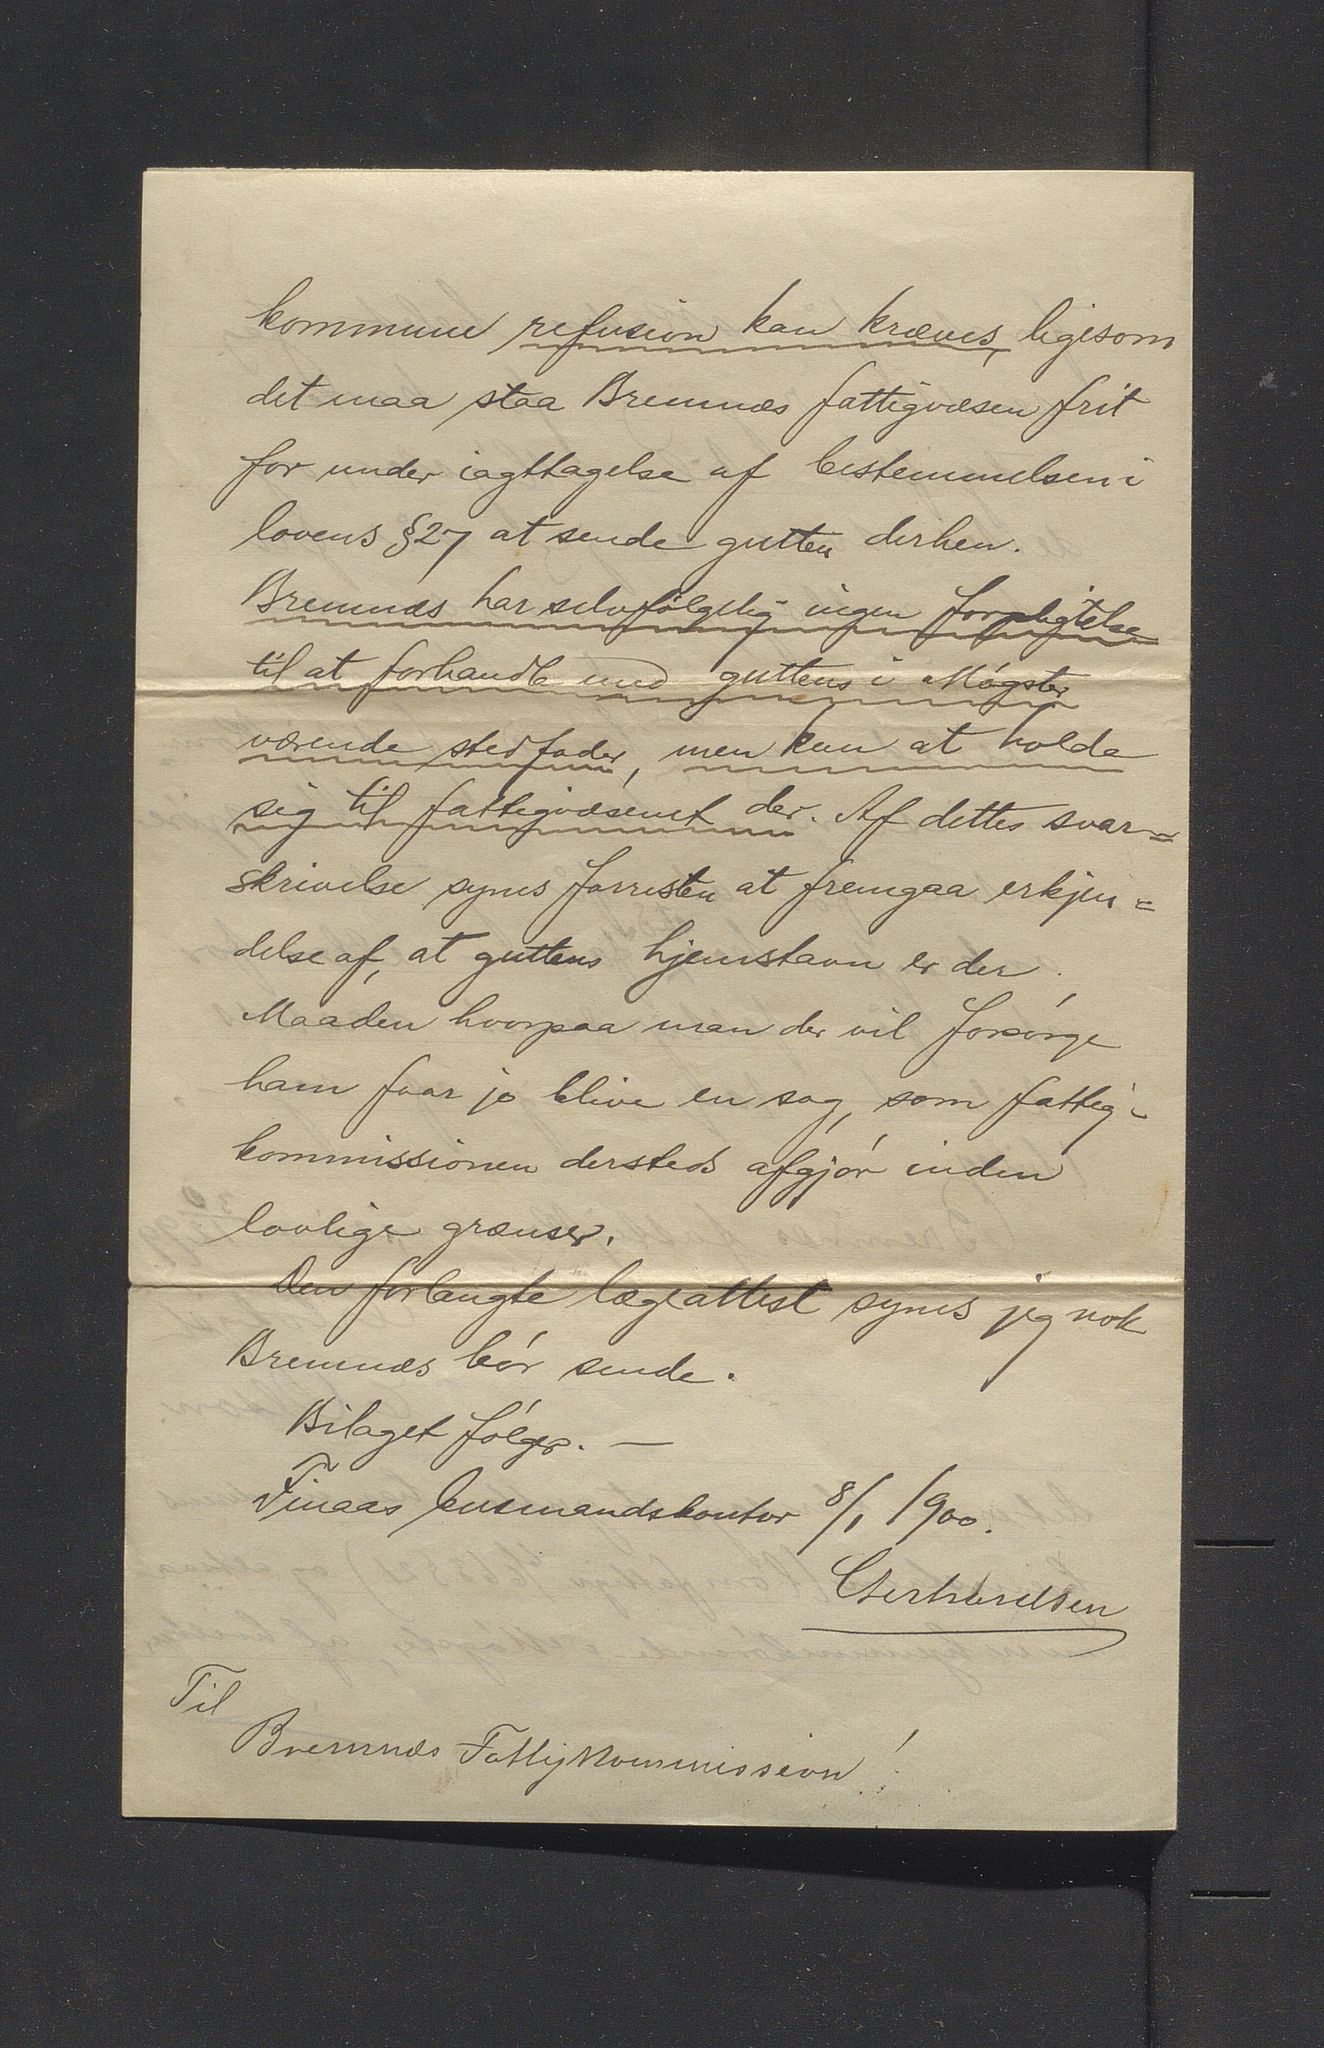 kommune refusion kan kræves, ligesom
det maa staa Bremnæs fattigvæsen frit
for under iagttagelse af bestemmelsen i
lovens §27 at sende gutten derhen.
Bremnæs har selvfølgelig ingen forpligtelse
til at forhandle med guttens i Møgster
værende stedfader, men kun at holde
sig til fattigvæsenet der. Af dettes svar=
skrivelse synes forresten at fremgaa erkjen=
delse af, at guttens hjemstavn er der.
Maaden hvorpaa man der vil forsørge
ham faar jo blive en sag, som fattig-
kommissionen dersteds afgjør inden
lovlige grænser.
Den forlangte lægeattest synes jeg nok
Bremnæs bør sende.
Bilaget følger. —
Finaas lensmandskontor 8/1 1900.
Gerhardsen
Til
Bremnæs Fattigkommission!